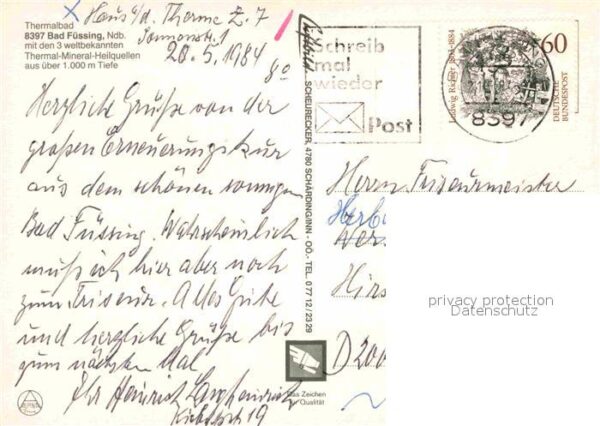 Thermalbad
8397 Bad Füssing, Ndb.
mit den 3 weltbekannten
Thermal-Mineral-Heilquellen
aus über 1.000 m Tiefe
x Haus a/d. Therme Z. 7
Sonnenstr. 1
20.5.1984
Herzliche Grüße von der
großen Erneuerungskur
aus dem schönen sonnigen
Bad Füssing. Wahrscheinlich
muß ich hier aber noch
zum Friseur. Alles Gute
und herzliche Grüße bis
zum nächsten Mal
Ihr Heinrich
19
SCHEURECKER, 4780 SCHÄRDING/INN - OÖ. - TEL. 0 77 12 / 23 29
Das Zeichen
für Qualität
Schreib
mal
wieder
Post
Ludwig Richter 1803-1884
60
DEUTSCHE
BUNDESPOST
8397
Herrn Friseurmeister
Herb
Hirs
D 200
privacy protection
Datenschutz